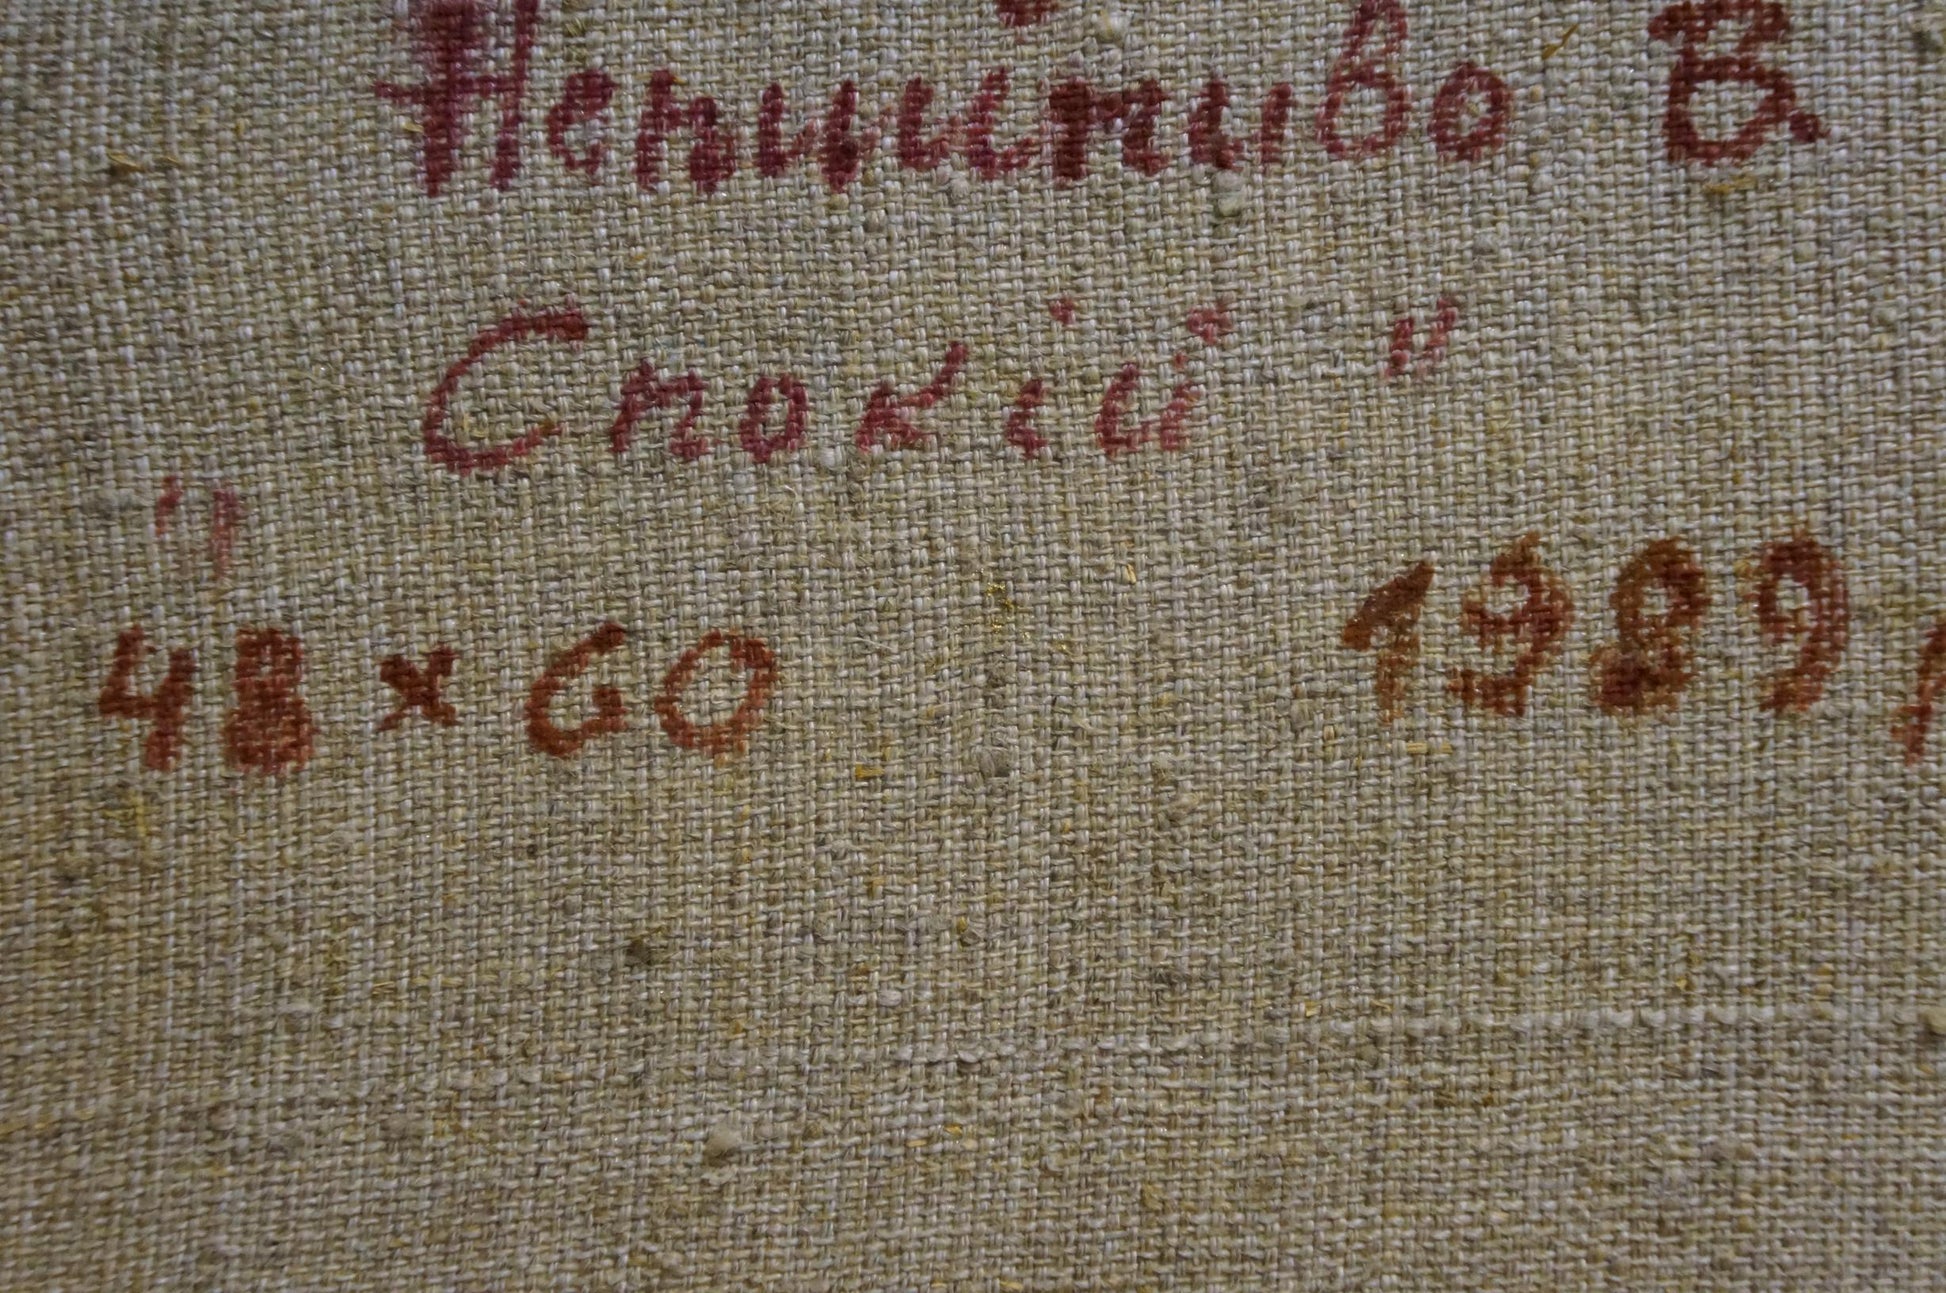 Непийпиво В
"Спокій"
48 x 60 1989